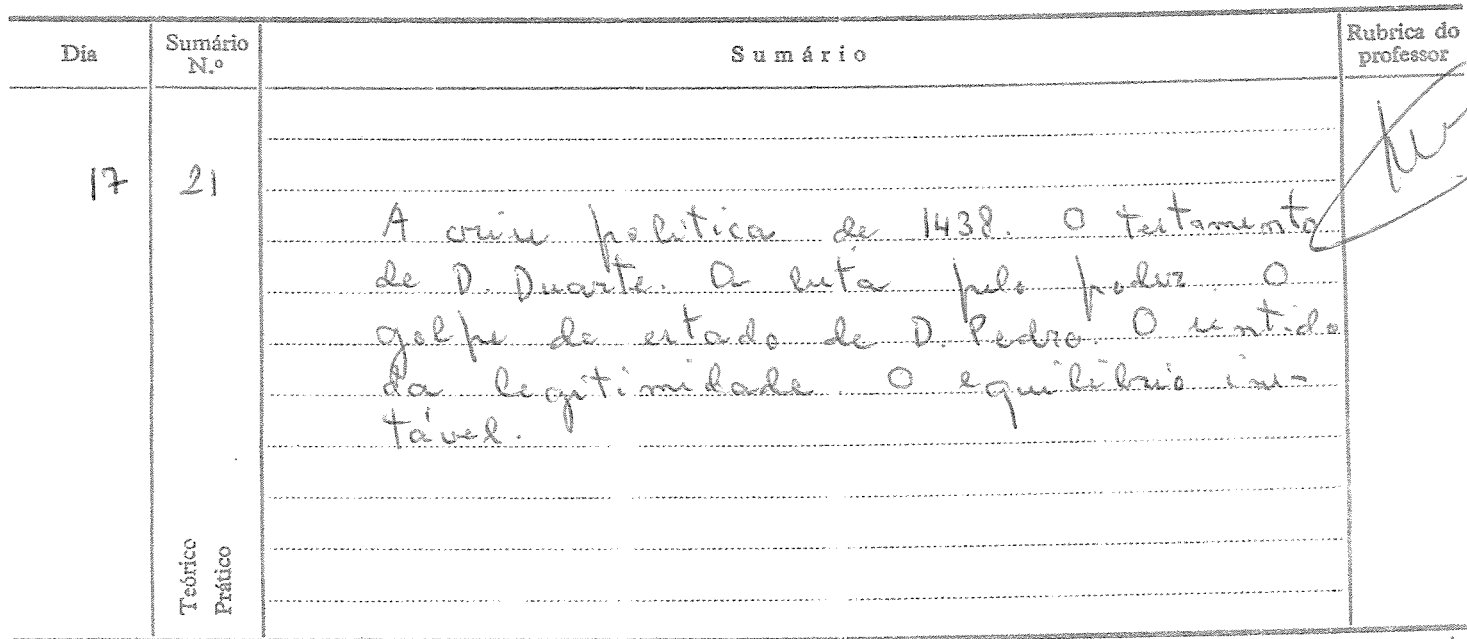 Dia Sumário N.º Sumário Rubrica do professor
17 21
A crise política de 1438. O testamento
de D. Duarte. A luta pelo poder. O
golpe de estado de D. Pedro. O sentido
da legitimidade. O equilíbrio ins-
tável.
Teórico
Prático